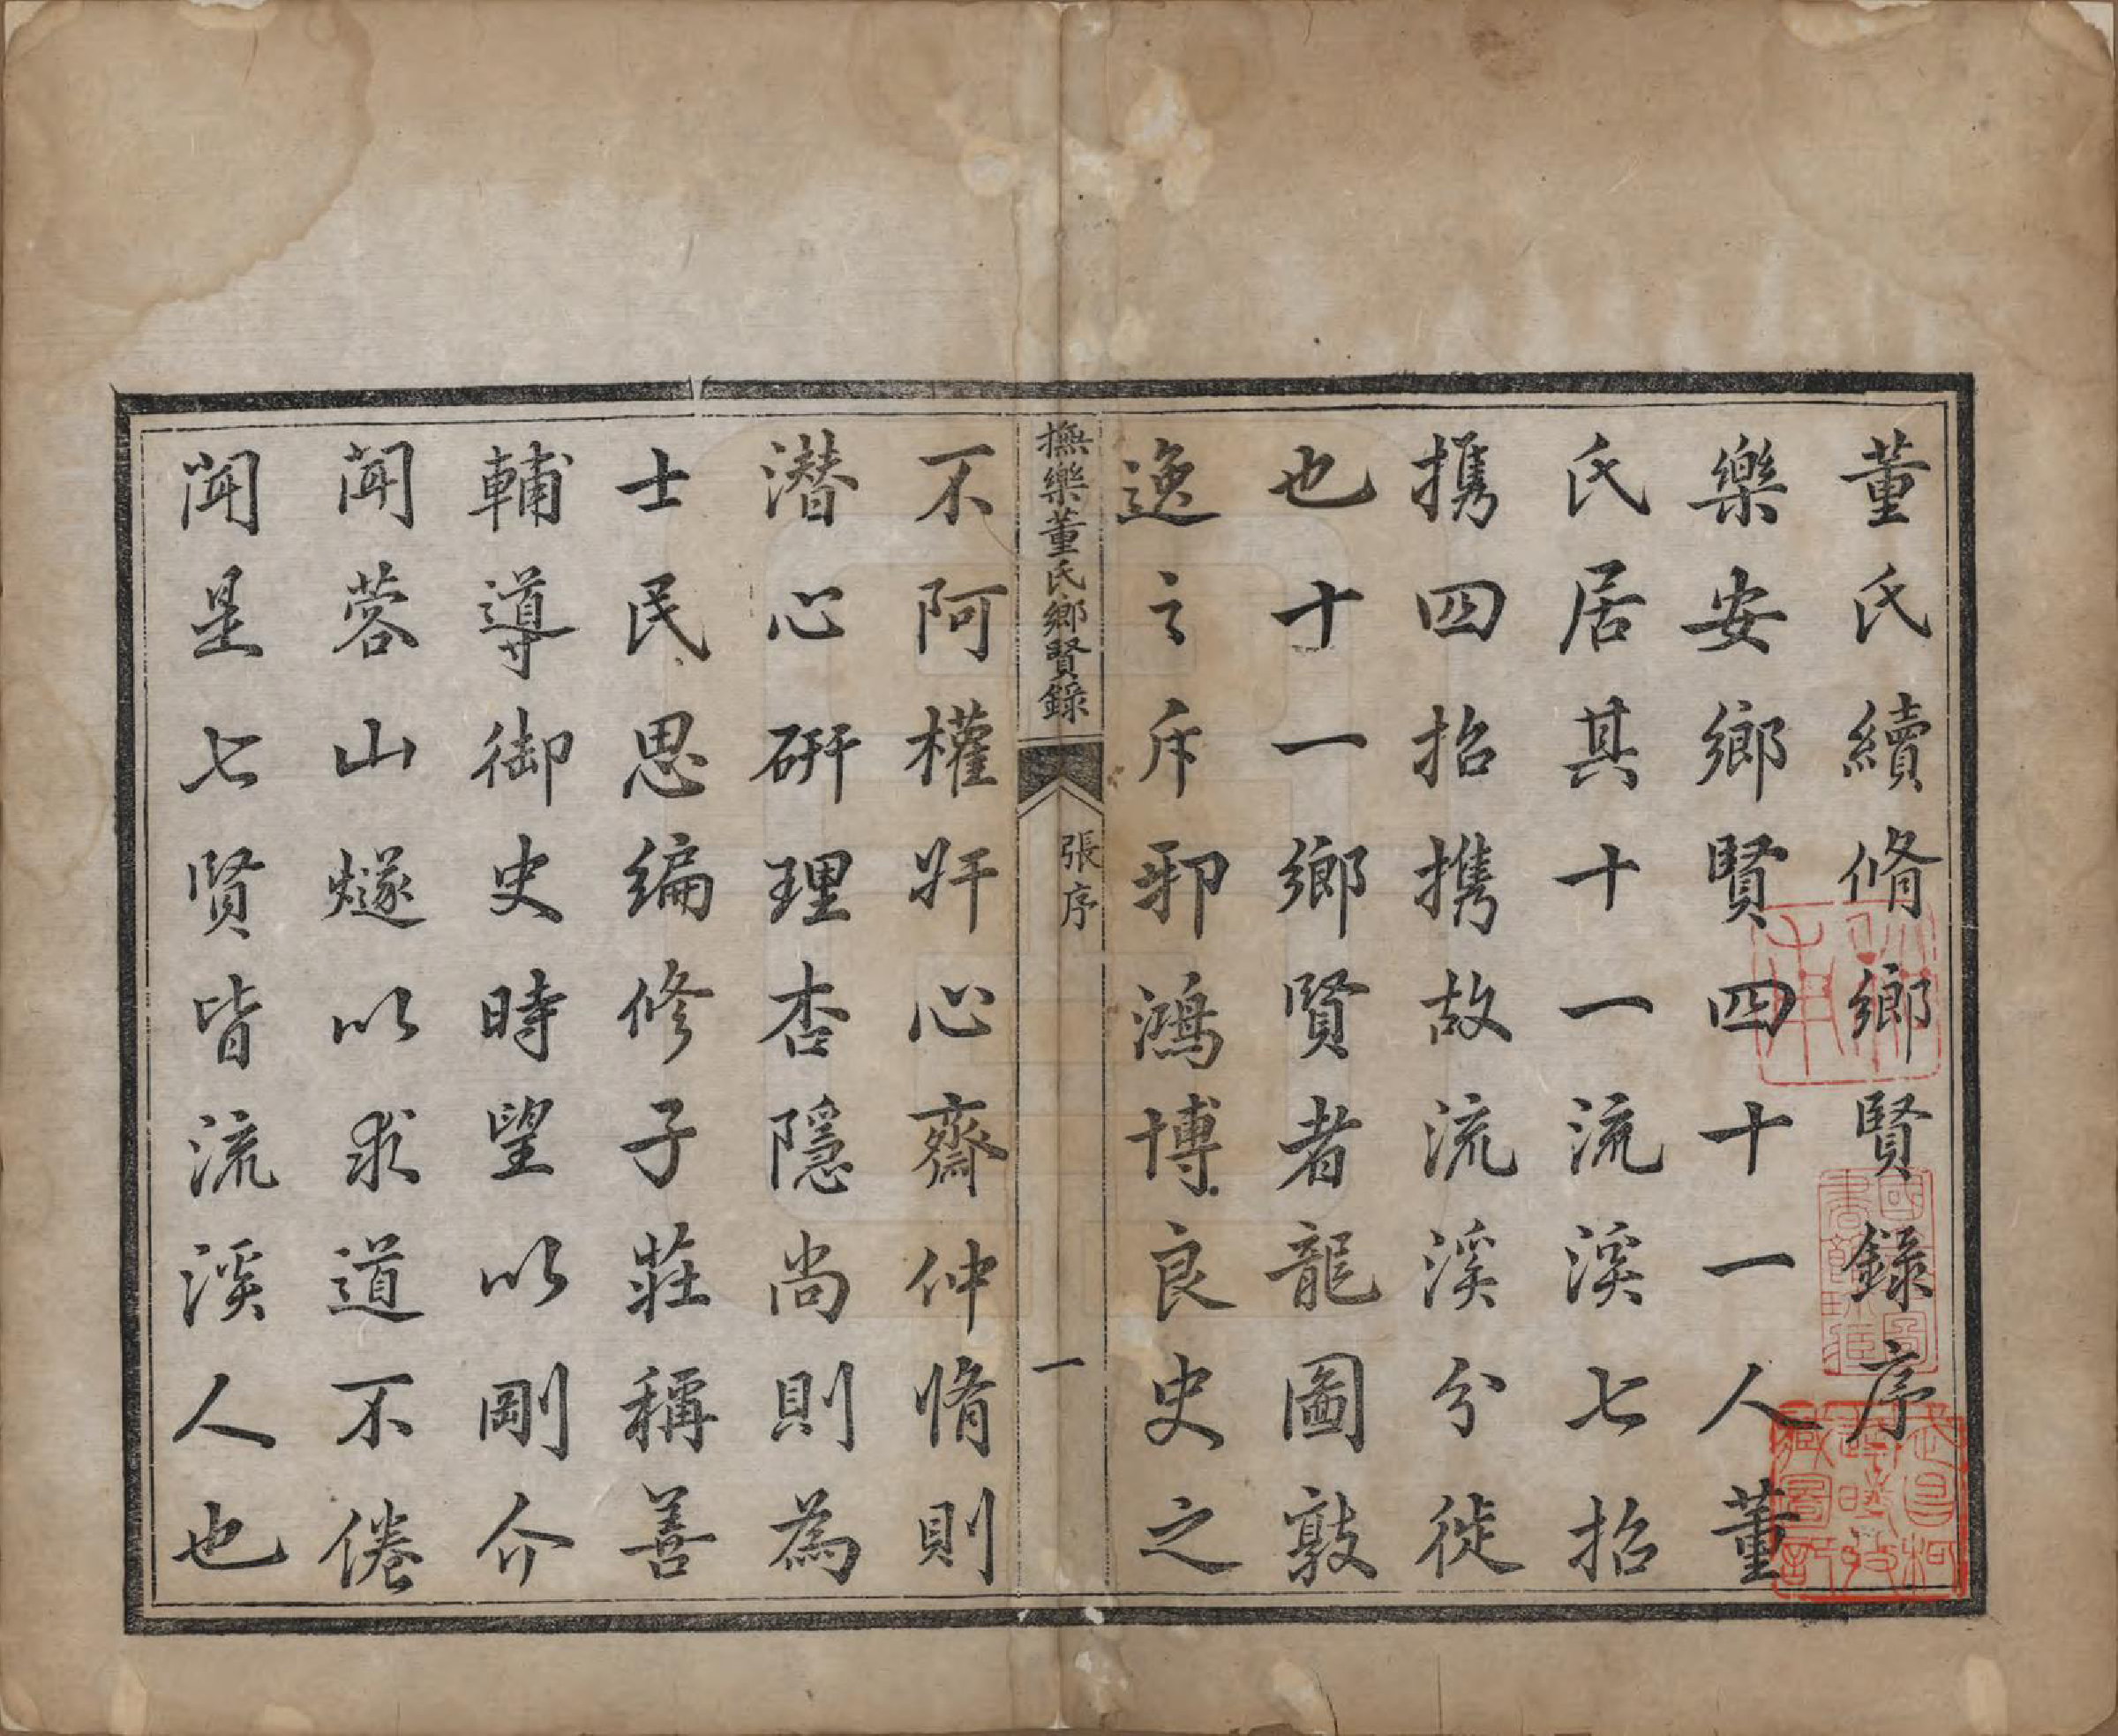 董氏續脩鄉賢錄序
樂安鄉賢四十一人董
氏居其十一流溪七招
携四招携故流溪分徙
也十一鄉賢者龍圖敦
逸之斥邪鴻博良史之
撫樂董氏鄉賢錄
張序
一
不阿權奸心齋仲脩則
潜心研理杏隱尚則為
士民思編修子莊稱善
輔導御史時望以剛介
聞蓉山燧以求道不倦
聞是七賢皆流溪人也